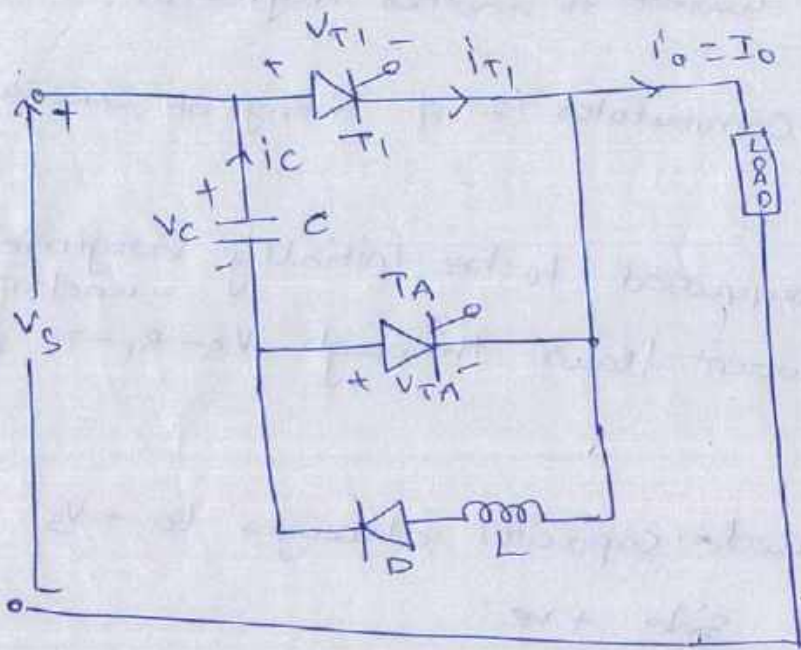 V_T1 -
+
i_T1
i_0 = I_0
+
T_1
i_C
+
V_C
C
-
LOAD
T_A
V_S
+ V_TA -
D
L